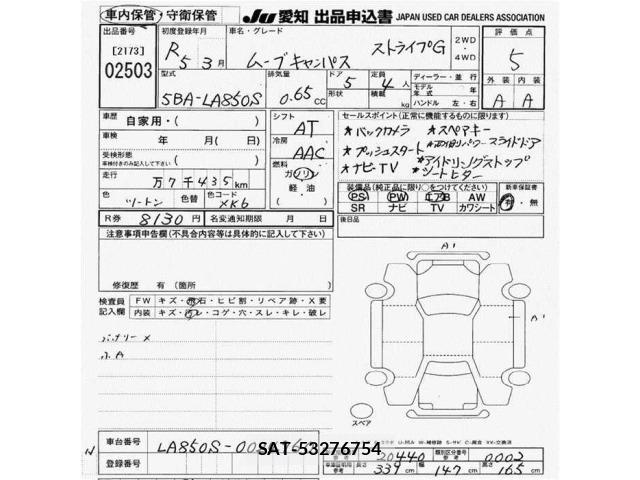 車内保管・守衛保管 JU 愛知 出品申込書 JAPAN USED CAR DEALERS ASSOCIATION
出品番号 初度登録年月 車名・グレード 評価点
[2173] R5 3月 ムーブキャンバス ストライプG 2WD 4WD 5
02503 型式 排気量 ドア 5 定員 4人 ディーラー・並行 外装 内装
5BA-LA850S 0.65cc 形状 積載 kg モデル年式 年 ハンドル 左・右 A A
車歴 自家用・( ) シフト AT セールスポイント(正常に機能するものに限ります)
車検 年 月( 日) 冷房 AAC ★バックカメラ ★スペアキー
受検形態 車検付きのみ記入して下さい ( ) 燃料 ★プッシュスタート ★両側パワースライドドア
走行 万7千435km ガソリン ★ナビTV ★アイドリングストップ
軽油 ★シートヒター
色 ツートン 色替 色コード XK6 ( ) 装備品(純正品に限り○をつけて下さい) 新車保証書
PS PW エアB AW 有・無
SR ナビ TV カワシート
R券 8130円 名変通知期限 月 日 後日品
注意事項申告欄(不具合内容等は具体的に記入して下さい)
A1
修復歴 有(箇所 )
検査員記入欄 FW キズ・飛石・ヒビ割・リペア跡・X要
内装 キズ・汚レ・コゲ・穴・スレ・キレ・破レ
A1
バッテリー×
スペア
車台番号 LA850S-00
SAT-53276754
登録番号
20440 類別区分番号 0002
長さ 339cm 幅 147cm 高さ 165cm